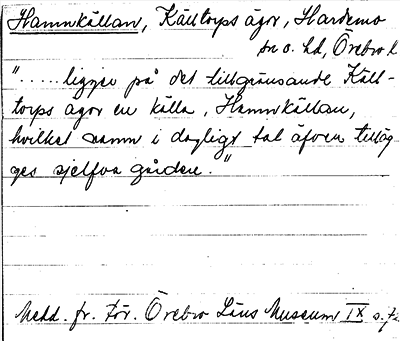 Hamnkällan, Källtorps ägor, Hardemo
sn o. hd, Örebro l
"..... ligger på det tillgränsande Käll-
torps ägor en källa, Hamnkällan,
hvilket namn i dagligt tal äfven tilläg-
ges sjelfva gården."
Medd. fr. För. Örebro Läns Museum IX s.